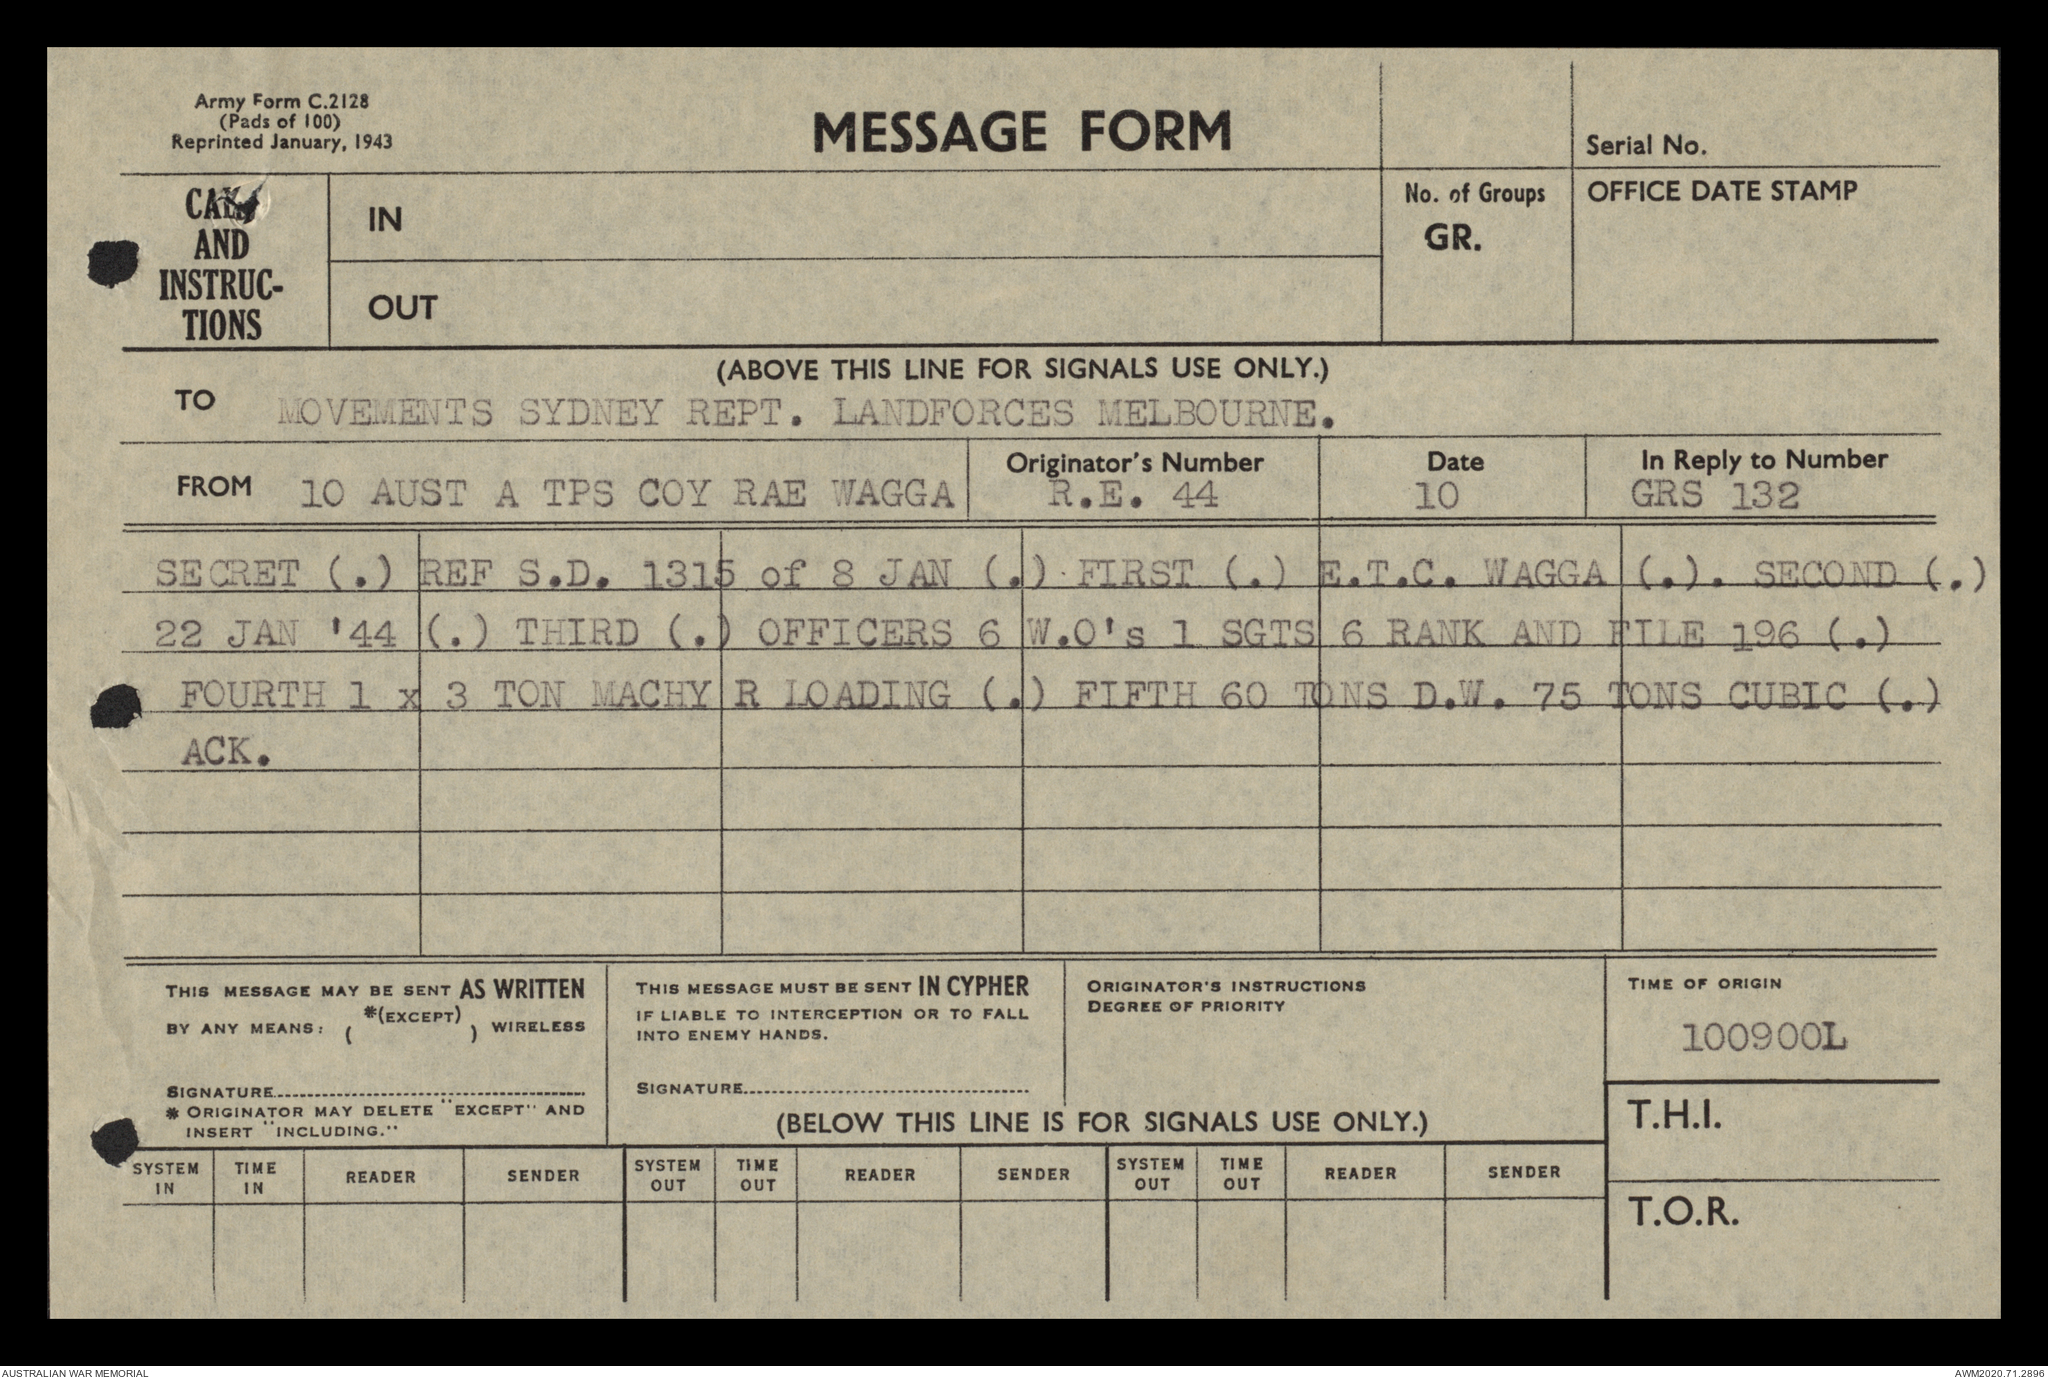 Army Form C.2128
(Pads of 100)
Reprinted January, 1943
MESSAGE FORM
Serial No.
CALL
AND
INSTRUC-
TIONS
IN
OUT
No. of Groups
GR.
OFFICE DATE STAMP
(ABOVE THIS LINE FOR SIGNALS USE ONLY.)
TO MOVEMENTS SYDNEY REPT. LANDFORCES MELBOURNE.
FROM 10 AUST A TPS COY RAE WAGGA
Originator's Number
R.E. 44
Date
10
In Reply to Number
GRS 132
SECRET (.) REF S.D. 1315 of 8 JAN (.) FIRST (.) E.T.C. WAGGA (.). SECOND (.)
22 JAN '44 (.) THIRD (.) OFFICERS 6 W.O's 1 SGTS 6 RANK AND FILE 196 (.)
FOURTH 1 x 3 TON MACHY R LOADING (.) FIFTH 60 TONS D.W. 75 TONS CUBIC (.)
ACK.
THIS MESSAGE MAY BE SENT AS WRITTEN
BY ANY MEANS: ( *(EXCEPT) ) WIRELESS
SIGNATURE
* ORIGINATOR MAY DELETE "EXCEPT" AND
INSERT "INCLUDING."
THIS MESSAGE MUST BE SENT IN CYPHER
IF LIABLE TO INTERCEPTION OR TO FALL
INTO ENEMY HANDS.
SIGNATURE
ORIGINATOR'S INSTRUCTIONS
DEGREE OF PRIORITY
TIME OF ORIGIN
100900L
(BELOW THIS LINE IS FOR SIGNALS USE ONLY.)
T.H.I.
T.O.R.
SYSTEM IN
TIME IN
READER
SENDER
SYSTEM OUT
TIME OUT
READER
SENDER
SYSTEM OUT
TIME OUT
READER
SENDER
AUSTRALIAN WAR MEMORIAL
AWM2020.71.2896